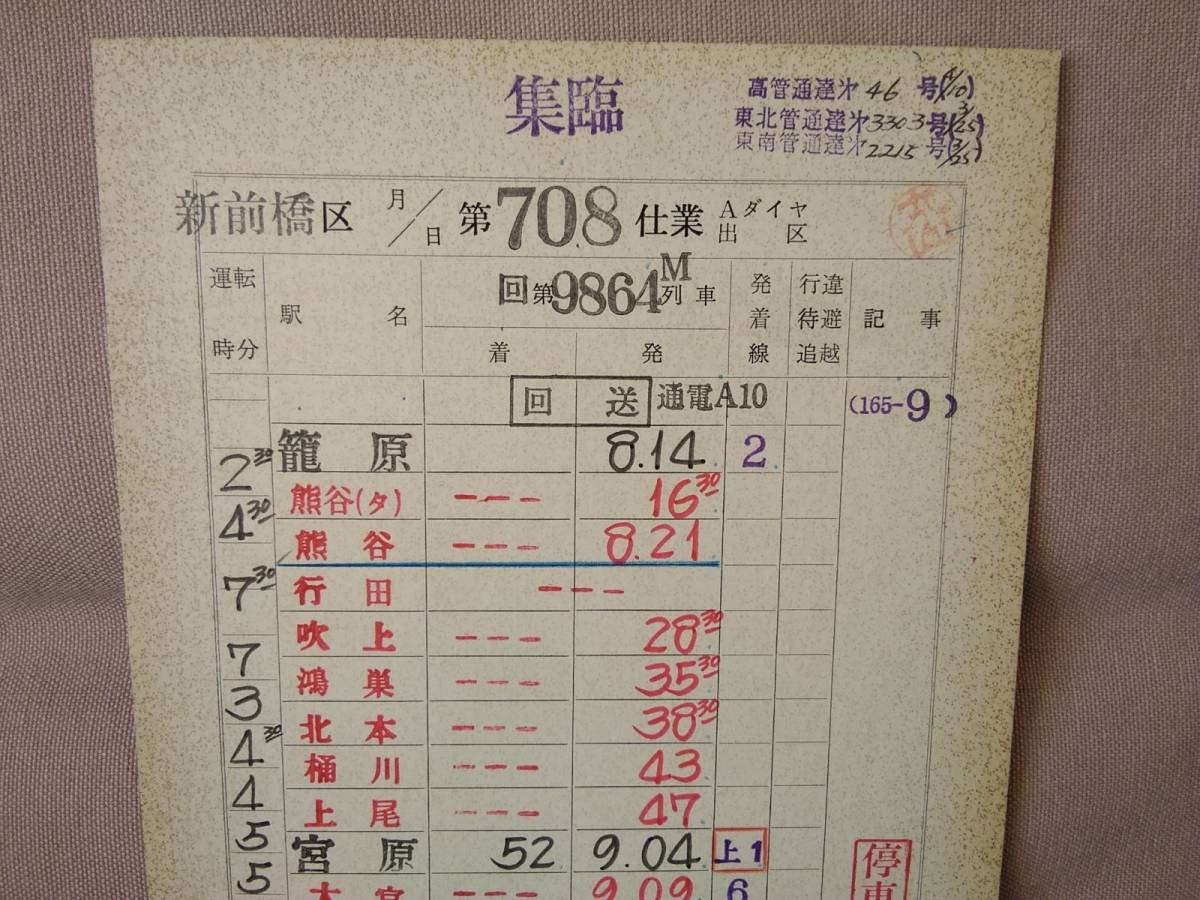 集臨
高管通達㐧46号(4/10)
東北管通達㐧3303号(3/25)
東南管通達㐧2215号(3/25)
新前橋区 月/日 第708仕業 Aダイヤ出区
運転時分 駅名 回第9864M列車 着 発 発着線 行違待避追越 記事
回送 通電A10 (165-9)
籠原 8.14 2
2 30
熊谷(タ) --- 16 30
4 30
熊谷 --- 8.21
行田 ---
7 30
吹上 --- 28 30
7
鴻巣 --- 35 30
3
北本 --- 38 30
4 30
桶川 --- 43
4
上尾 --- 47
5
宮原 52 9.04 上1 停車
5
大宮 --- 9.09 6